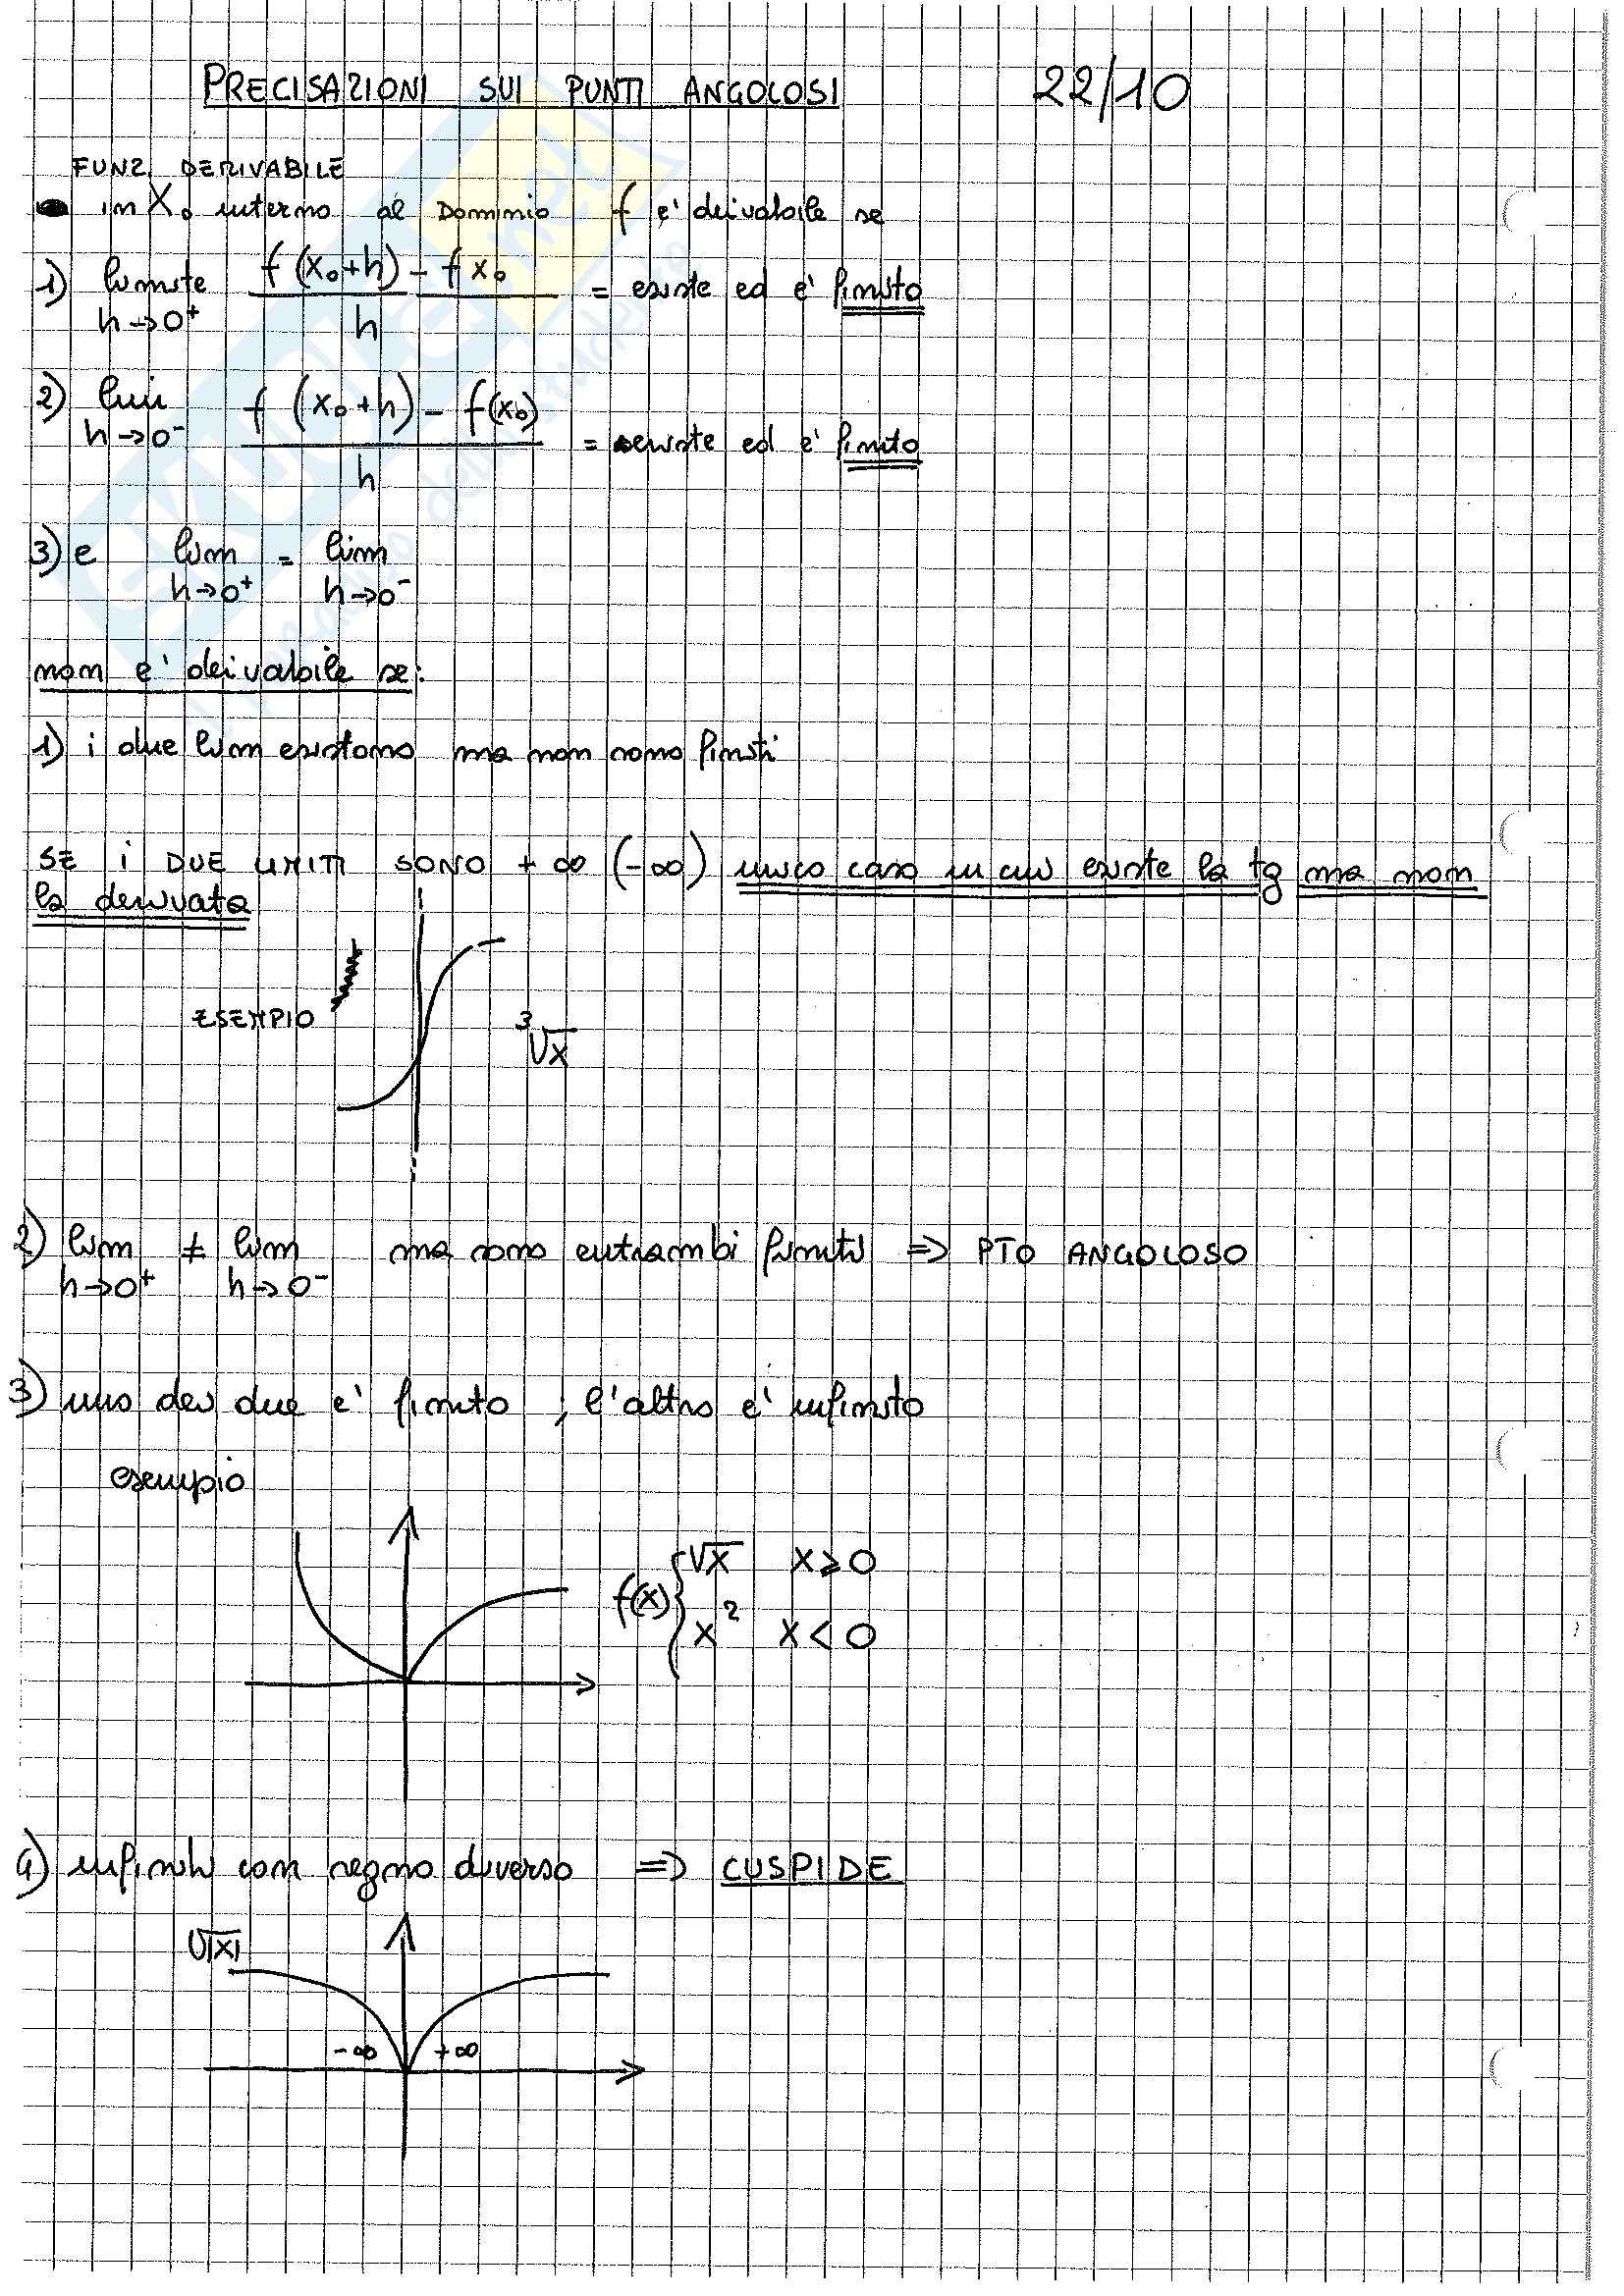 PRECISAZIONI SUI PUNTI ANGOLOSI 22/10
FUNZ. DERIVABILE
in X₀ interno al Dominio f e' derivabile se
1) limite h→0⁺ f(x₀+h) - f x₀ / h = esiste ed e' finito
2) lim h→0⁻ f(x₀+h) - f(x₀) / h = esiste ed e' finito
3) e lim h→0⁺ = lim h→0⁻
non e' derivabile se:
1) i due lim esistono ma non sono finiti
SE i DUE LIMITI SONO +∞ (-∞) unico caso in cui esiste la tg ma non
la derivata
ESEMPIO ³√x
2) lim h→0⁺ ≠ lim h→0⁻ ma sono entrambi finiti => PTO ANGOLOSO
3) uno dei due e' finito, l'altro e' infinito
esempio
f(x) { √x x≥0
x² x<0
4) infiniti con segno diverso => CUSPIDE
√|x|
-∞ +∞